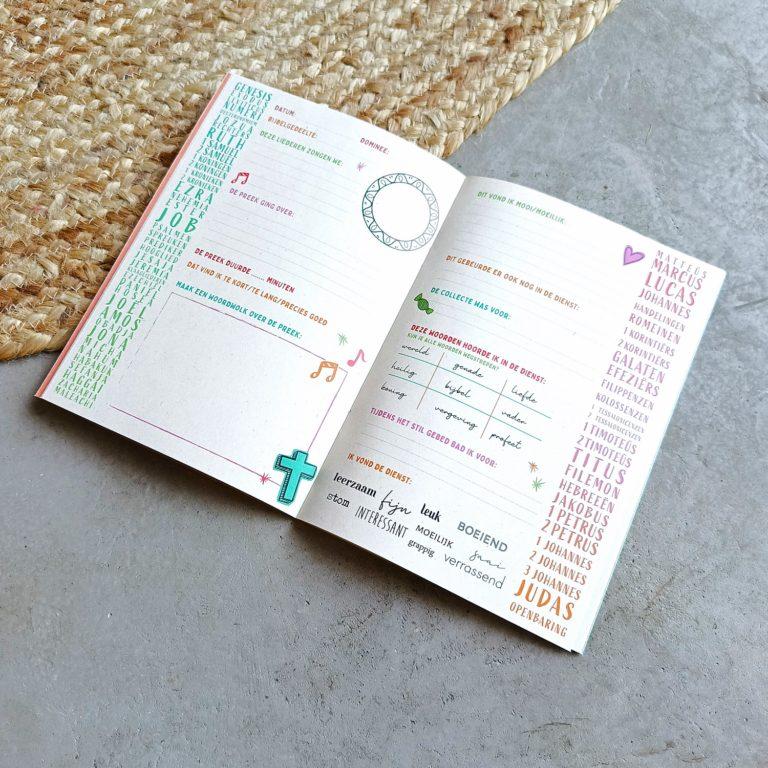 GENESIS
EXODUS
LEVITICUS
NUMERI
DEUTERONOMIUM
JOZUA
RECHTERS
RUTH
1 SAMUEL
2 SAMUEL
1 KONINGEN
2 KONINGEN
1 KRONIEKEN
2 KRONIEKEN
EZRA
NEHEMIA
ESTER
JOB
PSALMEN
SPREUKEN
PREDIKER
HOOGLIED
JESAJA
JEREMIA
KLAAGLIEDEREN
DANIËL
HOSEA
JOËL
AMOS
OBADJA
JONA
MICHA
NAHUM
HABAKUK
SEFANJA
HAGGAI
ZACHARIA
MALEACHI
DATUM:
BIJBELGEDEELTE: DOMINEE:
DEZE LIEDEREN ZONGEN WE:
DE PREEK GING OVER:
DE PREEK DUURDE ...... MINUTEN
DAT VIND IK TE KORT/TE LANG/PRECIES GOED
MAAK EEN WOORDWOLK OVER DE PREEK:
DIT VOND IK MOOI/MOEILIJK:
DIT GEBEURDE ER OOK NOG IN DE DIENST:
DE COLLECTE WAS VOOR:
DEZE WOORDEN HOORDE IK IN DE DIENST:
KUN JE ALLE WOORDEN WEGSTREPEN?
wereld genade liefde
heilig bijbel vader
koning vergeving profeet
TIJDENS HET STIL GEBED BAD IK VOOR:
IK VOND DE DIENST:
leerzaam fijn leuk BOEIEND
stom INTERESSANT MOEILIJK saai
grappig verrassend
MATTEÜS
MARCUS
LUCAS
JOHANNES
HANDELINGEN
ROMEINEN
1 KORINTIËRS
2 KORINTIËRS
GALATEN
EFEZIËRS
FILIPPENZEN
KOLOSSENZEN
1 TESSALONICENZEN
2 TESSALONICENZEN
1 TIMOTEÜS
2 TIMOTEÜS
TITUS
FILEMON
HEBREEËN
JAKOBUS
1 PETRUS
2 PETRUS
1 JOHANNES
2 JOHANNES
3 JOHANNES
JUDAS
OPENBARING